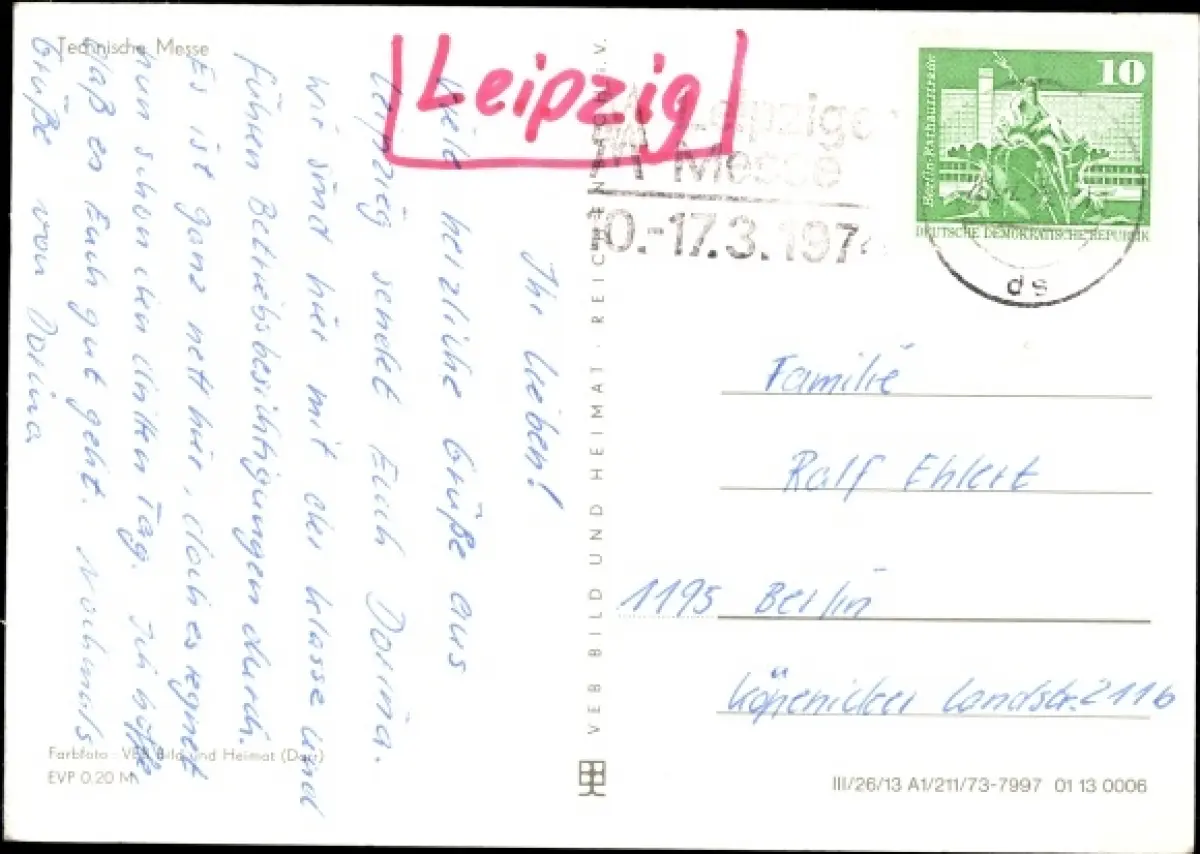 Technische Messe
Leipzig
Ihr Lieben!
Viele herzliche Grüße aus
Leipzig sendet Euch Dorina.
Wir sind hier mit der Klasse und
führen Betriebsbesichtigungen durch.
Es ist ganz nett hier, doch es regnet
nun schon den dritten Tag. Ich hoffe
daß es Euch gut geht. Nochmals
Grüße von Dorina
Farbfoto: VEB Bild und Heimat (Darr)
EVP 0.20 M
VEB BILD UND HEIMAT · REICHENBACH i. V.
Leipziger
Messe
10.-17.3.1974
10
Berlin-Rathausstraße
DEUTSCHE DEMOKRATISCHE REPUBLIK
ds
Familie
Ralf Ehlert
1195 Berlin
Köpenicker Landstr. 211b
III/26/13 A1/211/73-7997 01 13 0006